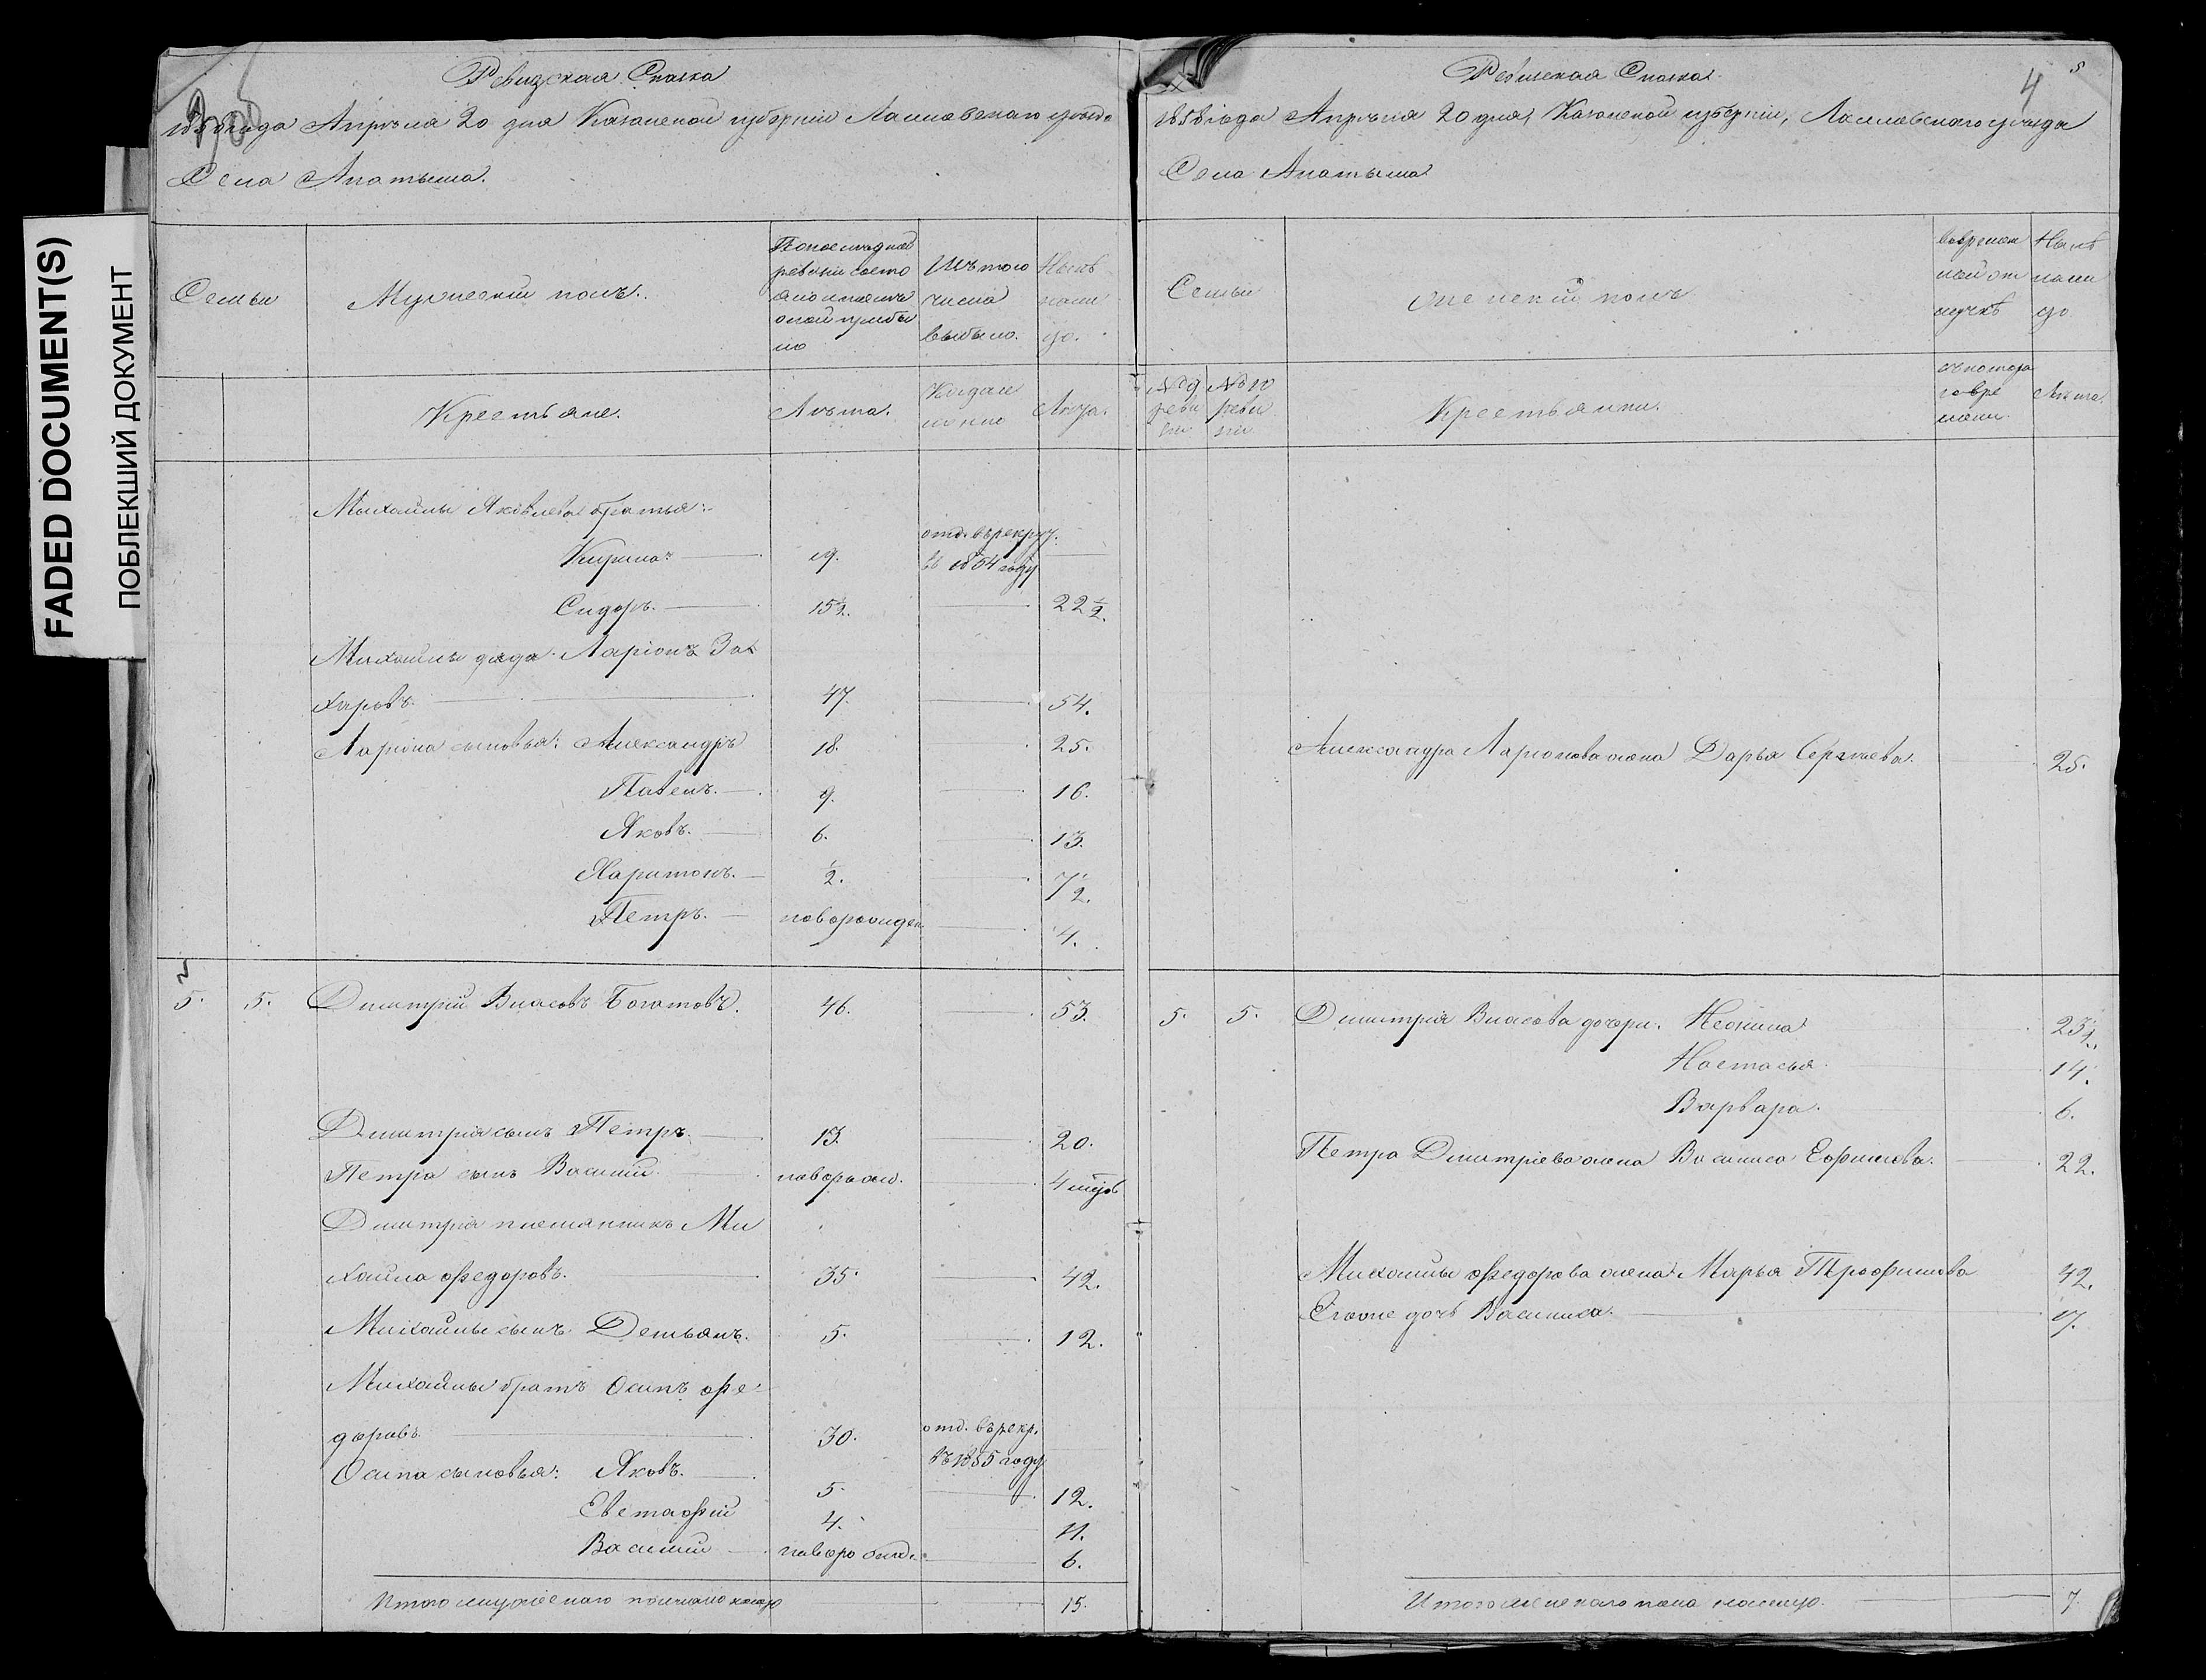 FADED DOCUMENT(S)
ПОБЛЕКШИЙ ДОКУМЕНТ
Ревизская Сказка
года Апрѣля 20 дня Казанской губерніи Лаишевскаго уѣзда
Села Анатыша.
Семьи
Мужескій полъ.
По последней
ревизіи состо
яло и после
оной прибы
ло
Изъ того
числа
выбыло.
Нынѣ
нали
цо.
Крестьяне.
Лѣта.
Когда
именно
Лѣта.
Михайлы Яковлева братья:
Кирила 19. отд. въ рекрут. въ 1854 году
Сидоръ. 15½. 22½.
Михайлы дядя Ларіонъ За
харовъ. 47. 54.
Ларіона сыновья: Александръ 18. 25.
Павелъ. 9. 16.
Яковъ. 6. 13.
Харитонъ. ½. 7½.
Петръ. новорожден. 4.
5. 5. Дмитрій Власовъ Богатовъ. 46. 53.
Дмитрія сынъ Петръ. 13. 20.
Петра сынъ Василій. новорож. 4
Дмитрія племянникъ Ми
хайла Федоровъ. 35. 42.
Михайлы сынъ Демьянъ. 5. 12.
Михайлы братъ Осипъ Фе
доровъ. 30. отд. въ рекр. въ 1855 году
Осипа сыновья: Яковъ. 5. 12.
Евстафій 4. 11.
Василій новорожд. 6.
Итого мужескаго пола на лицо 15.
4
Ревизская Сказка
1858 года Апрѣля 20 дня, Казанской губерніи, Лаишевскаго уѣзда
Села Анатыша
Семьи
Женскій полъ
Во времен
ной от
лучкѣ
Нынѣ
нали
цо
№ 9
реви
зіи
№ 10
реви
зіи
Крестьянки.
съ котора
го вре
мени.
Лѣта.
Александра Ларионова жена Дарья Сергѣева. 25.
5. 5. Дмитрія Власова дочери: Неонила 23½.
Настасья 14.
Варвара. 6.
Петра Дмитріева жена Василиса Ефимова. 22.
Михайлы Федорова жена Марья Трофимова 42.
Его же дочь Василиса. 17.
Итого женскаго пола на лицо. 7.